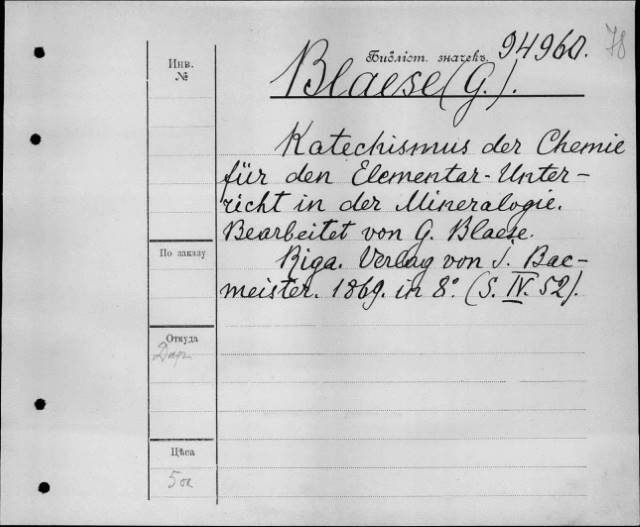 Библіот. значекъ 94960. 78
Инв.
№
Blaese (G.).
Katechismus der Chemie
für den Elementar-Unter-
richt in der Mineralogie.
Bearbeitet von G. Blaese.
По заказу
Riga. Verlag von J. Bac-
meister. 1869. in 8°. (S. IV. 52).
Откуда
Даръ
Цѣна
50к